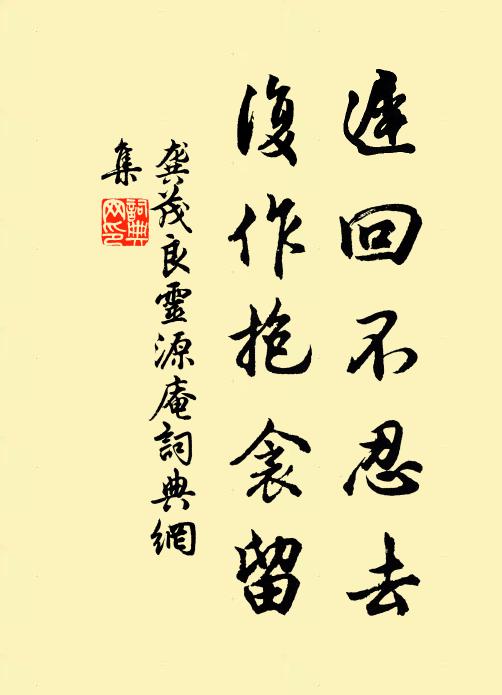 遲回不忍去
復作抱衾留
龔茂良靈源庵詞典網
集
詞典网印